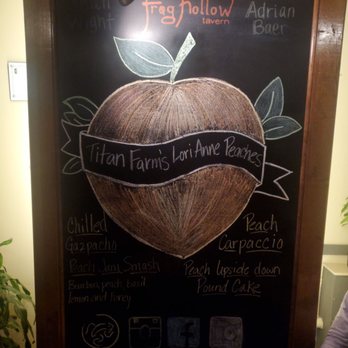 frog hollow
tavern
Adrian
Baer
Titan Farm's Lori Anne Peaches
Chilled
Gazpacho
Peach
Carpaccio
Peach Jam Smash
Bourbon, peach, basil
lemon and honey
Peach Upside down
Pound Cake